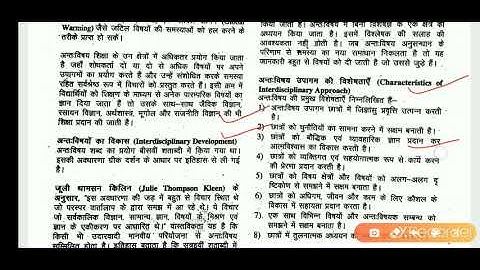 Warming) जैसे जटिल विषयों की समस्याओं को हल करने के
तरीके प्राप्त हो सकें।
अन्तःविषय शिक्षा के उन क्षेत्रों में अधिकतर प्रयोग किया जाता
है जहाँ शोधकर्ता दो या दो से अधिक विषयों पर अपने
उपागमों का प्रयोग करते हैं और उन्हें संशोधित करके समस्या
रहित सर्वश्रेष्ठ रूप में विचारों को प्रस्तुत करते हैं। इसी क्रम में
विद्यार्थियों को शिक्षण के माध्यम से समाज से पारम्परिक विषयों का
ज्ञान दिया जाता है तो उसके साथ-साथ जैविक विज्ञान,
रसायन विज्ञान, अर्थशास्त्र, भूगोल और राजनीति विज्ञान की
भी शिक्षा प्रदान की जाती है।
अन्तःविषयों का विकास (Interdisciplinary Development)
अन्तःविषय शब्द का प्रयोग बीसवीं शताब्दी में किया गया था।
इसकी अवधारणा ग्रीक दर्शन के आधार पर इतिहास से ली गई
है।
जूली थामसन क्लिन (Julie Thompson Kleen) के
अनुसार, "इस अवधारणा की जड़ में बहुत से विचार स्थित थे
जो परस्पर वार्तालाप के द्वारा समझ में आ रहे थे। ये विचार
जो सार्वकालिक विज्ञान, सामान्य ज्ञान, विषयों के मिश्रण एवं
ज्ञान के एकीकरण पर आधारित थे।" वास्तविकता यह है कि
किसी भी उदारवादी मानवीय परियोजना से अन्तःविषय
सम्मिलित होता है। इतिहास बताता है कि सत्रहवीं शताब्दी में
किया जाता है। अन्तःविषय में बिना विशेषज्ञ के एक क्षेत्र का
अध्ययन किया जाता है। इसमें विश्लेषक की सलाह की
आवश्यकता नहीं होती है। जब अन्तःविषय अनुसन्धान के
परिणाम से समस्या का नया समाधान निकलता है तो यह
जानकारी बहुत से विषयों को दी जाती है जो उससे जुड़े हैं।
अन्तःविषय उपागम की विशेषताएँ (Characteristics of
Interdisciplinary Approach)
अन्तःविषय की प्रमुख विशेषताएँ निम्नलिखित हैं-
1) अन्तःविषय उपागम छात्रों में जिज्ञासु प्रवृत्ति उत्पन्न करती
है।
2) छात्रों को चुनौतियों का सामना करने में सक्षम बनाती है।
3) छात्रों को बौद्धिक एवं व्यावहारिक ज्ञान प्रदान कर
आत्मविश्वास का विकास करती है।
4) छात्रों को व्यक्तिगत एवं सहयोगात्मक रूप से कार्य करने
की प्रेरणा प्रदान करती है।
5) छात्रों को विषय क्षेत्रों और विषयों को अलग-अलग
दृष्टिकोण से समझने में सक्षम बनाता है।
6) छात्रों को अधिगम, जीवन और काम के लिए कौशल के
विकास में सहायता प्रदान करता है।
7) एक साथ विभिन्न विषयों और अन्तःविषयक सम्बन्ध को
समझने में सक्षम बनाता है।
8) छात्रों में तुलनात्मक अध्ययन